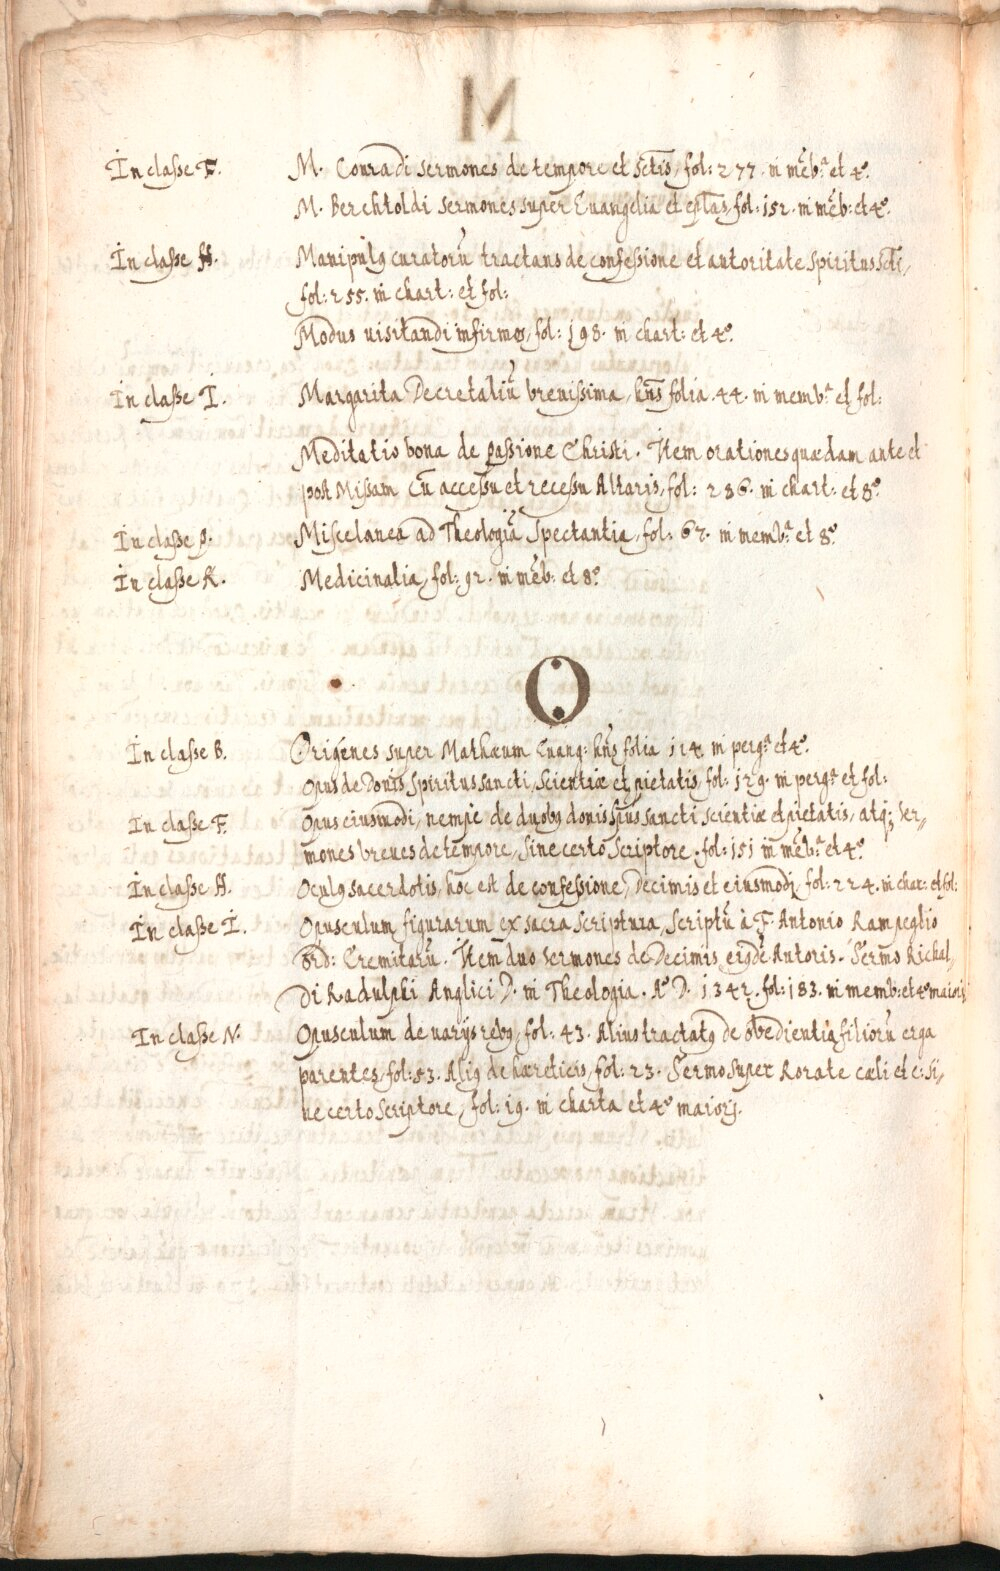 In classe F. M. Conradi sermones de tempore et Sctis, fol: 277. in mēb.ᵃ et 4°.
M. Berchtoldi sermones super Euangelia et eplas, fol: 152. in mēb: et 4°.
In classe H. Manipulꝰ curatorū tractans de confessione et autoritate Spiritus Scti,
fol: 255. in chart: et fol:
Modus uisitandi infirmos, fol: 198. in chart: et 4°.
In classe I. Margarita Decretaliū breuissima, hñs folia 44. in memb.ᵃ et fol:
Meditatio bona de passione Christi. Item orationes quædam ante et
post Missam cū accessu et recessu Altaris, fol: 286. in chart: et 8°.
In classe P. Miscelanea ad Theologiā Spectantia, fol: 67. in memb.ᵃ et 8°.
In classe K. Medicinalia, fol: 92. in mēb: et 8°.
O
In classe B. Origénes super Mathæum Euang: hñs folia 114 in perg.ᵃ et 4°.
Opus de Donis Spiritus sancti, scientiæ et pietatis, fol: 129. in perg.ᵃ et fol:
In classe F. Opus eiusmodi, nempe de duobꝰ donis Spūs sancti scientiæ et pietatis, atq; ser„
mones breues de tempore, Sine certo Scriptore. fol: 151 in mēb.ᵃ et 4°.
In classe H. Oculꝰ sacerdotis, hoc est de confessione, Decimis et eiusmodi, fol: 224. in char: et fol:
In classe I. Opusculum figurarum ex sacra scriptura, Scriptū à F. Antonio Rampeglio
Ord: Eremitarū. Item duo sermones de Decimis eiꝰdē Autoris. Sermo Richal„
di Radulphi Anglici D. in Theologia. A° D. 1342. fol: 183. in memb: et 4° maiorj.
In classe N. Opusculum de uarijs rebꝰ, fol: 43. Alius tractatꝰ de obedientia filiorū erga
parentes, fol: 53. Aliꝰ de hæreticis, fol: 23. Sermo super Rorate cæli et c: Si„
ne certo Scriptore, fol: 19. in charta et 4° maiorj.